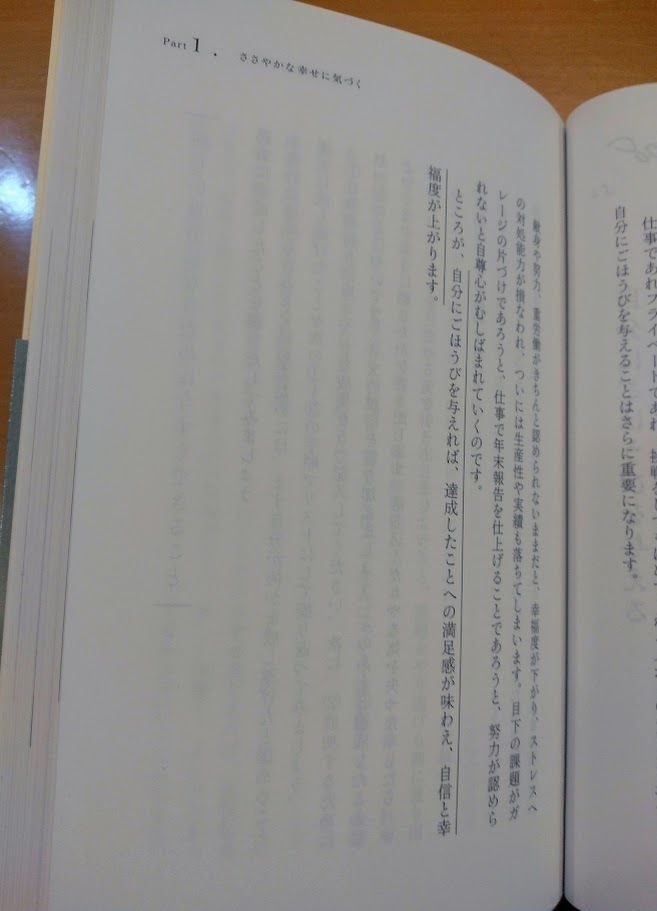 仕事であれプライベートであれ、挑戦を
自分にごほうびを与えることはさらに重要になります。
Part 1 . ささやかな幸せに気づく
献身や努力、重労働がきちんと認められないままだと、幸福度が下がり、ストレスへ
の対処能力が損なわれ、ついには生産性や実績も落ちてしまいます。目下の課題がガ
レージの片づけであろうと、仕事で年末報告を仕上げることであろうと、努力が認めら
れないと自尊心がむしばまれていくのです。
ところが、自分にごほうびを与えれば、達成したことへの満足感が味わえ、自信と幸
福度が上がります。